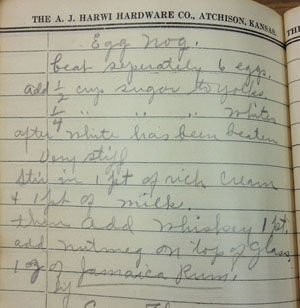 THE A. J. HARWI HARDWARE CO., ATCHISON, KANSAS.
THE
Egg Nog.
beat seperately 6 eggs,
add 1/2 cup sugar to yolks
1/4 " " " " whites
after white has been beaten
very stiff
Stir in 1 pt of rich cream
+ 1 pt of milk.
then add whiskey 1 pt,
add nutmeg on top of glass,
1 oz of Jamaica Rum,
by